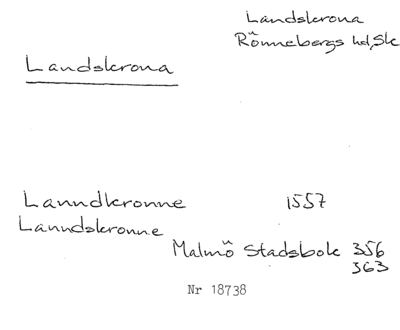 Landskrona
Rönnebergs hd, Sk
Landskrona
Lanndkronne 1557
Lanndskronne
Malmö Stadsbok 356
363
Nr 18738